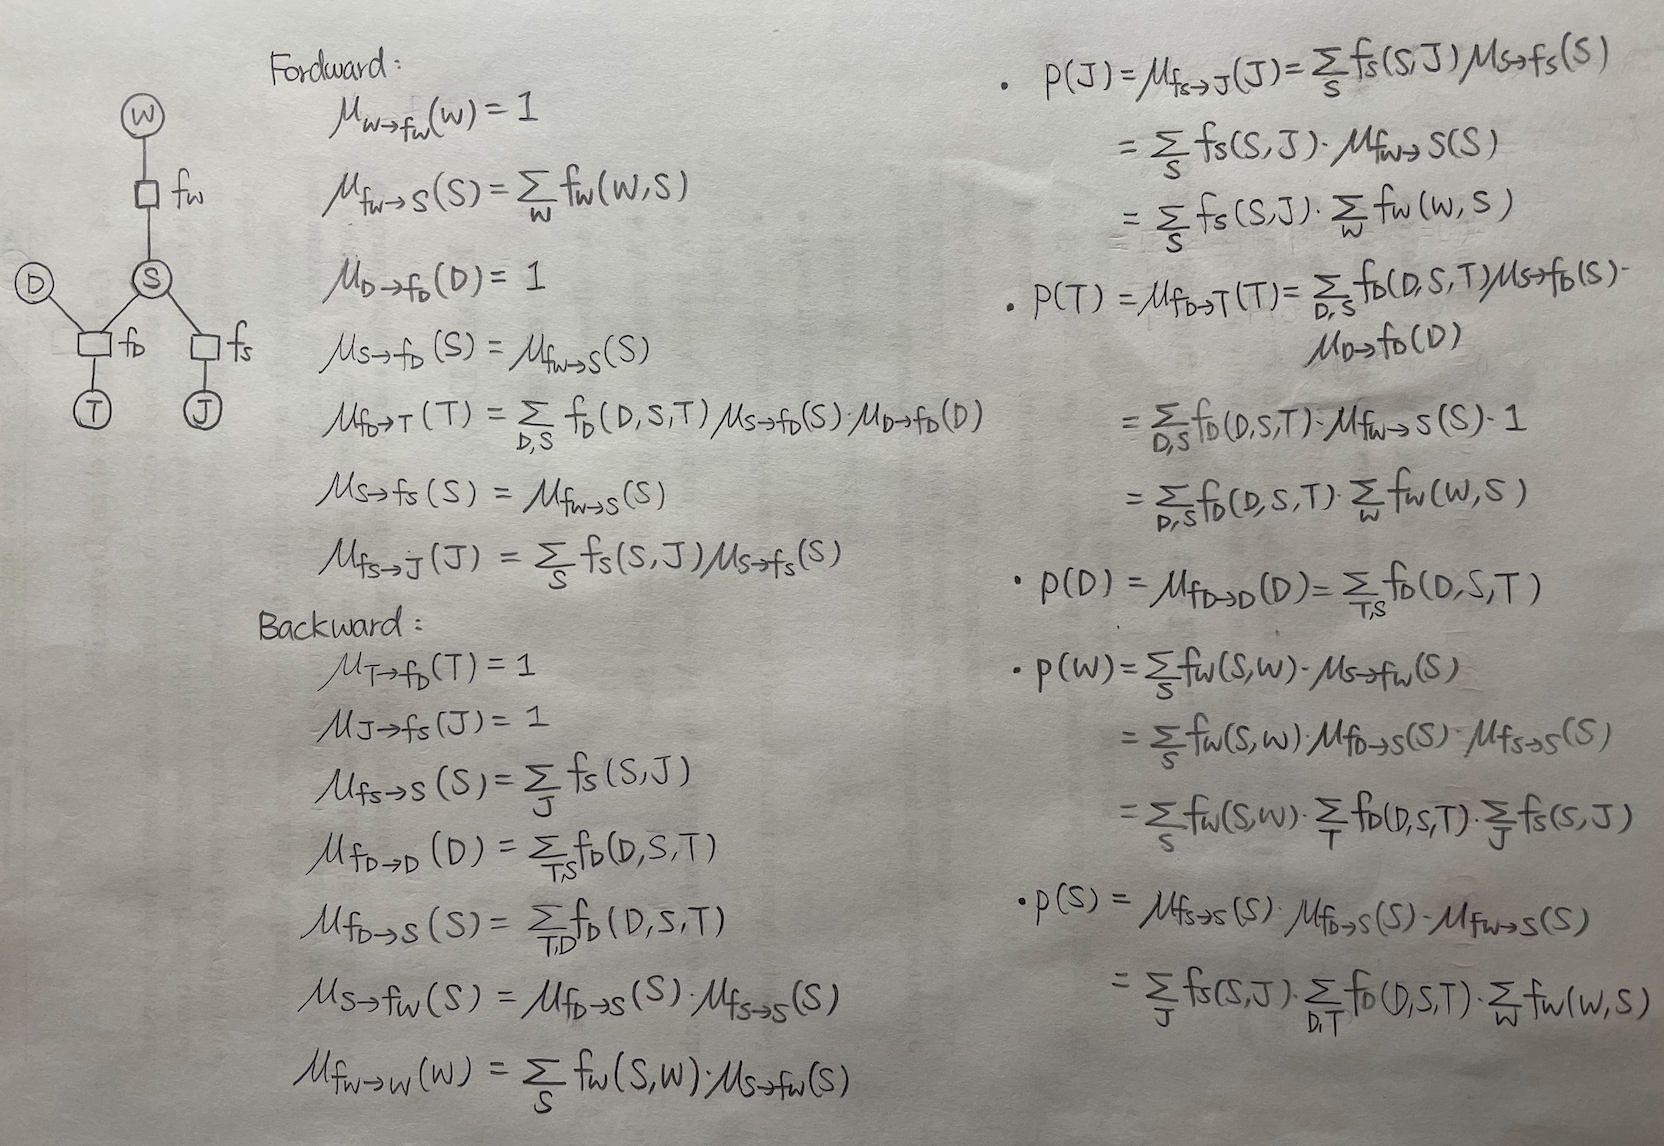 W
fw
D
S
fD
fs
T
J
Fordward:
μ_{W→fw}(W) = 1
μ_{fw→S}(S) = Σ_W fw(W,S)
μ_{D→fD}(D) = 1
μ_{S→fD}(S) = μ_{fw→S}(S)
μ_{fD→T}(T) = Σ_{D,S} fD(D,S,T) μ_{S→fD}(S)·μ_{D→fD}(D)
μ_{S→fs}(S) = μ_{fw→S}(S)
μ_{fs→J}(J) = Σ_S fs(S,J) μ_{S→fs}(S)
Backward:
μ_{T→fD}(T) = 1
μ_{J→fs}(J) = 1
μ_{fs→S}(S) = Σ_J fs(S,J)
μ_{fD→D}(D) = Σ_{T,S} fD(D,S,T)
μ_{fD→S}(S) = Σ_{T,D} fD(D,S,T)
μ_{S→fw}(S) = μ_{fD→S}(S)·μ_{fs→S}(S)
μ_{fw→W}(W) = Σ_S fw(S,W)·μ_{S→fw}(S)
• P(J) = μ_{fs→J}(J) = Σ_S fs(S,J) μ_{S→fs}(S)
= Σ_S fs(S,J)· μ_{fw→S}(S)
= Σ_S fs(S,J)· Σ_W fw(W,S)
• P(T) = μ_{fD→T}(T) = Σ_{D,S} fD(D,S,T) μ_{S→fD}(S)·
μ_{D→fD}(D)
= Σ_{D,S} fD(D,S,T)·μ_{fw→S}(S)·1
= Σ_{D,S} fD(D,S,T)· Σ_W fw(W,S)
• P(D) = μ_{fD→D}(D) = Σ_{T,S} fD(D,S,T)
• P(W) = Σ_S fw(S,W)·μ_{S→fw}(S)
= Σ_S fw(S,W)·μ_{fD→S}(S)·μ_{fs→S}(S)
= Σ_S fw(S,W)· Σ_T fD(D,S,T)· Σ_J fs(S,J)
• P(S) = μ_{fs→S}(S)·μ_{fD→S}(S)·μ_{fw→S}(S)
= Σ_J fs(S,J)· Σ_{D,T} fD(D,S,T)· Σ_W fw(W,S)